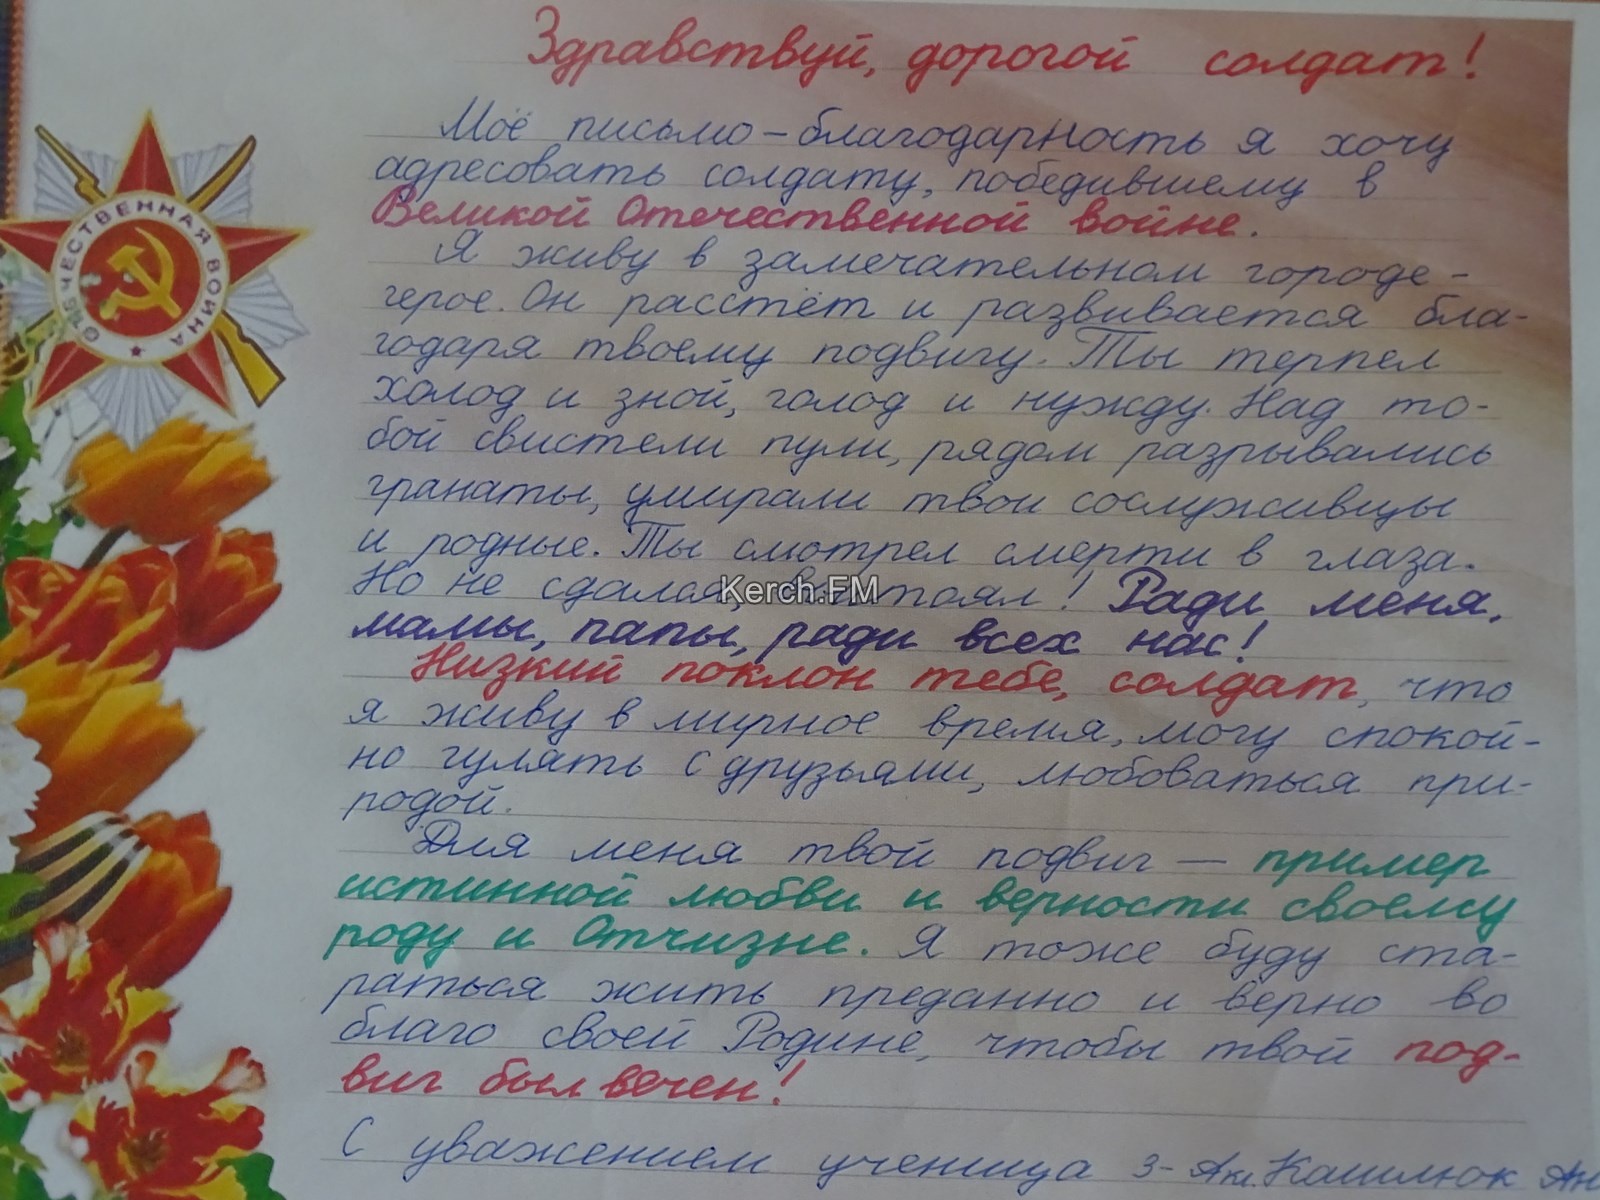 Здравствуй, дорогой солдат!
Моё письмо-благодарность я хочу
адресовать солдату, победившему в
Великой Отечественной войне.
Я живу в замечательном городе-
герое. Он расстёт и развивается бла-
годаря твоему подвигу. Ты терпел
холод и зной, голод и нужду. Над то-
бой свистели пули, рядом разрывались
гранаты, умирали твои сослуживцы
и родные. Ты смотрел смерти в глаза.
Но не сдался, выстоял! Ради меня,
Kerch.FM
мамы, папы, ради всех нас!
Низкий поклон тебе, солдат, что
я живу в мирное время, могу спокой-
но гулять с друзьями, любоваться при-
родой.
Для меня твой подвиг — пример
истинной любви и верности своему
роду и Отчизне. Я тоже буду ста-
раться жить преданно и верно во
благо своей Родине, чтобы твой под-
виг был вечен!
С уважением ученица 3-А кл. Кашлюк Ан
ОТЕЧЕСТВЕННАЯ ВОЙНА